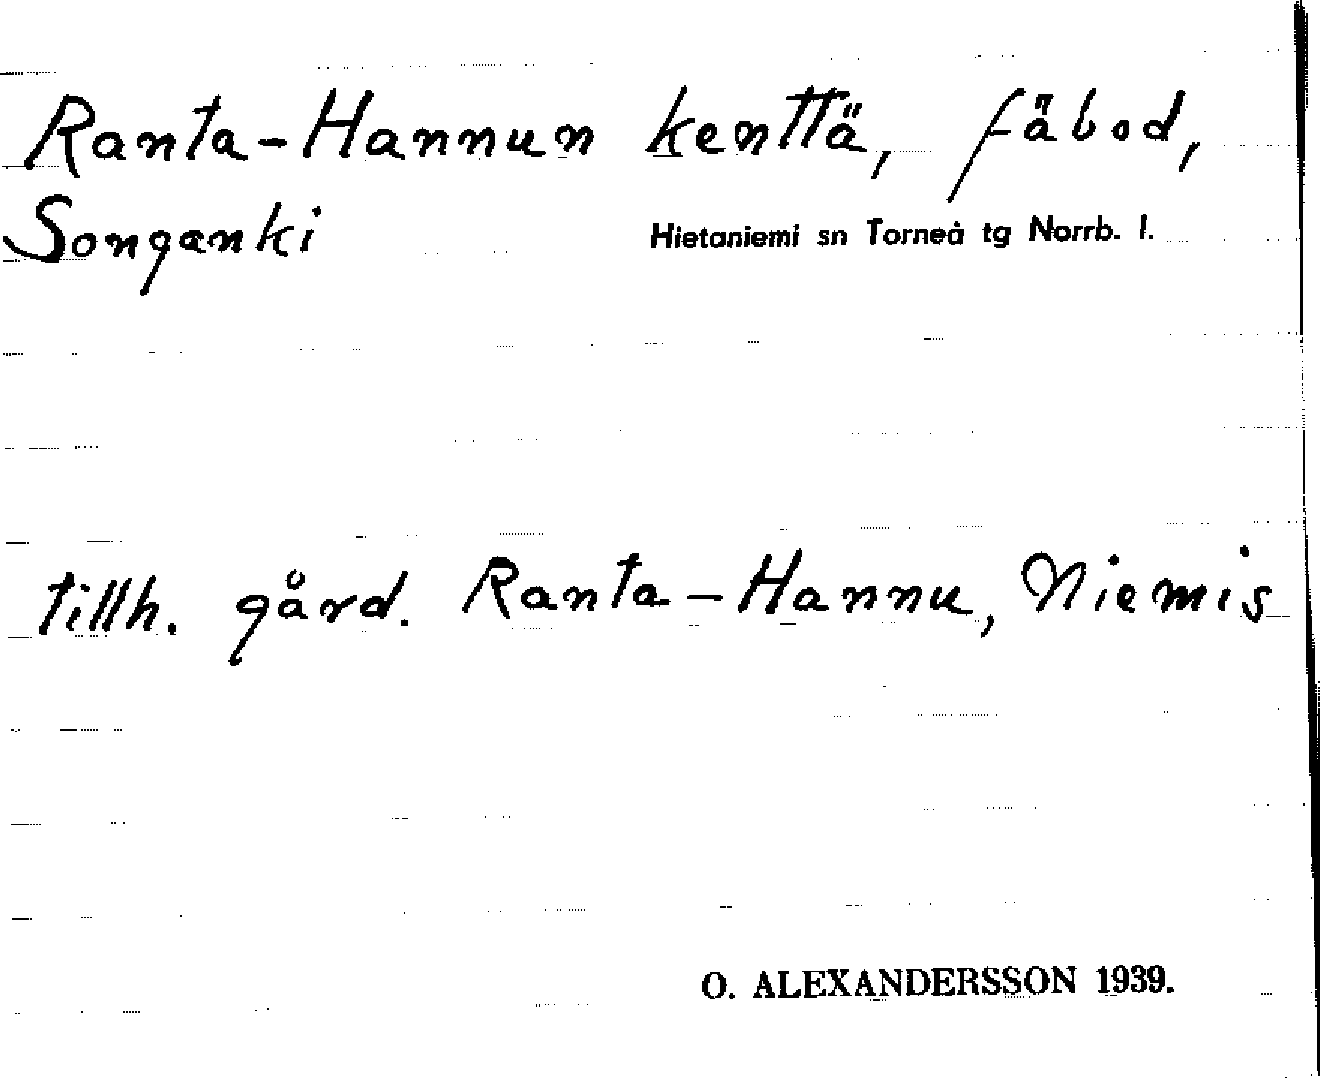 Ranta-Hannun kenttä, fäbod,
Songanki Hietaniemi sn Torneå tg Norrb. l.
tillh. gård. Ranta-Hannu, Niemis
O. ALEXANDERSSON 1939.